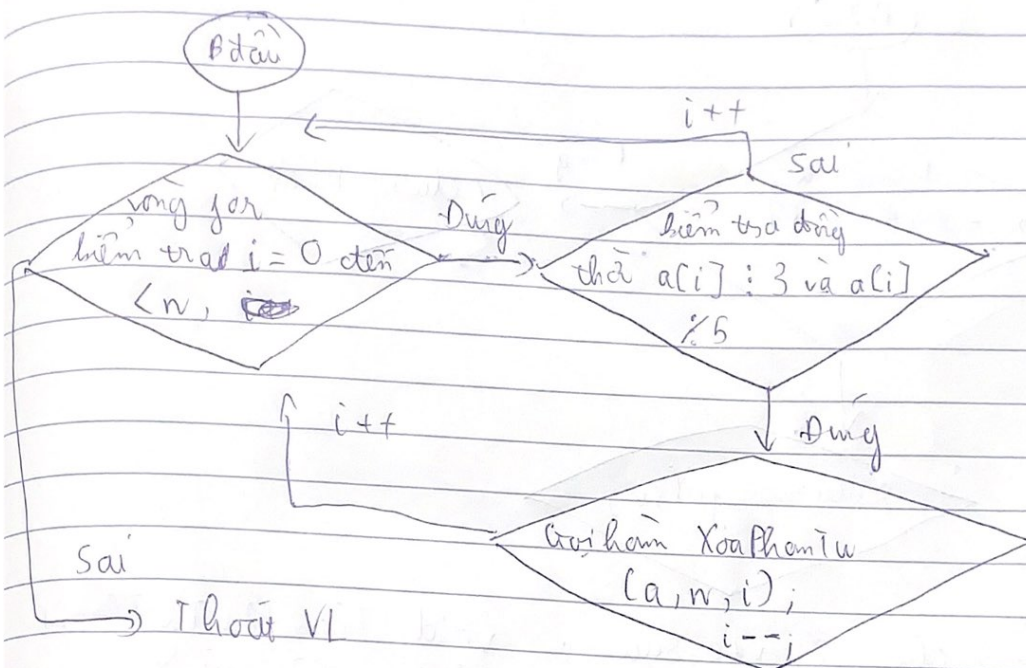 Bđầu
i++
Sai
vòng for
kiểm tra i = 0 đến
< n,
Đúng
kiểm tra đồng
thời a[i] ⋮ 3 và a[i]
% 5
i++
Đúng
Gọi hàm XoaPhanTu
(a, n, i);
i--;
Sai
Thoát VL